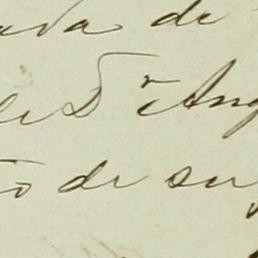 ada de
de Dr Ang
to de su